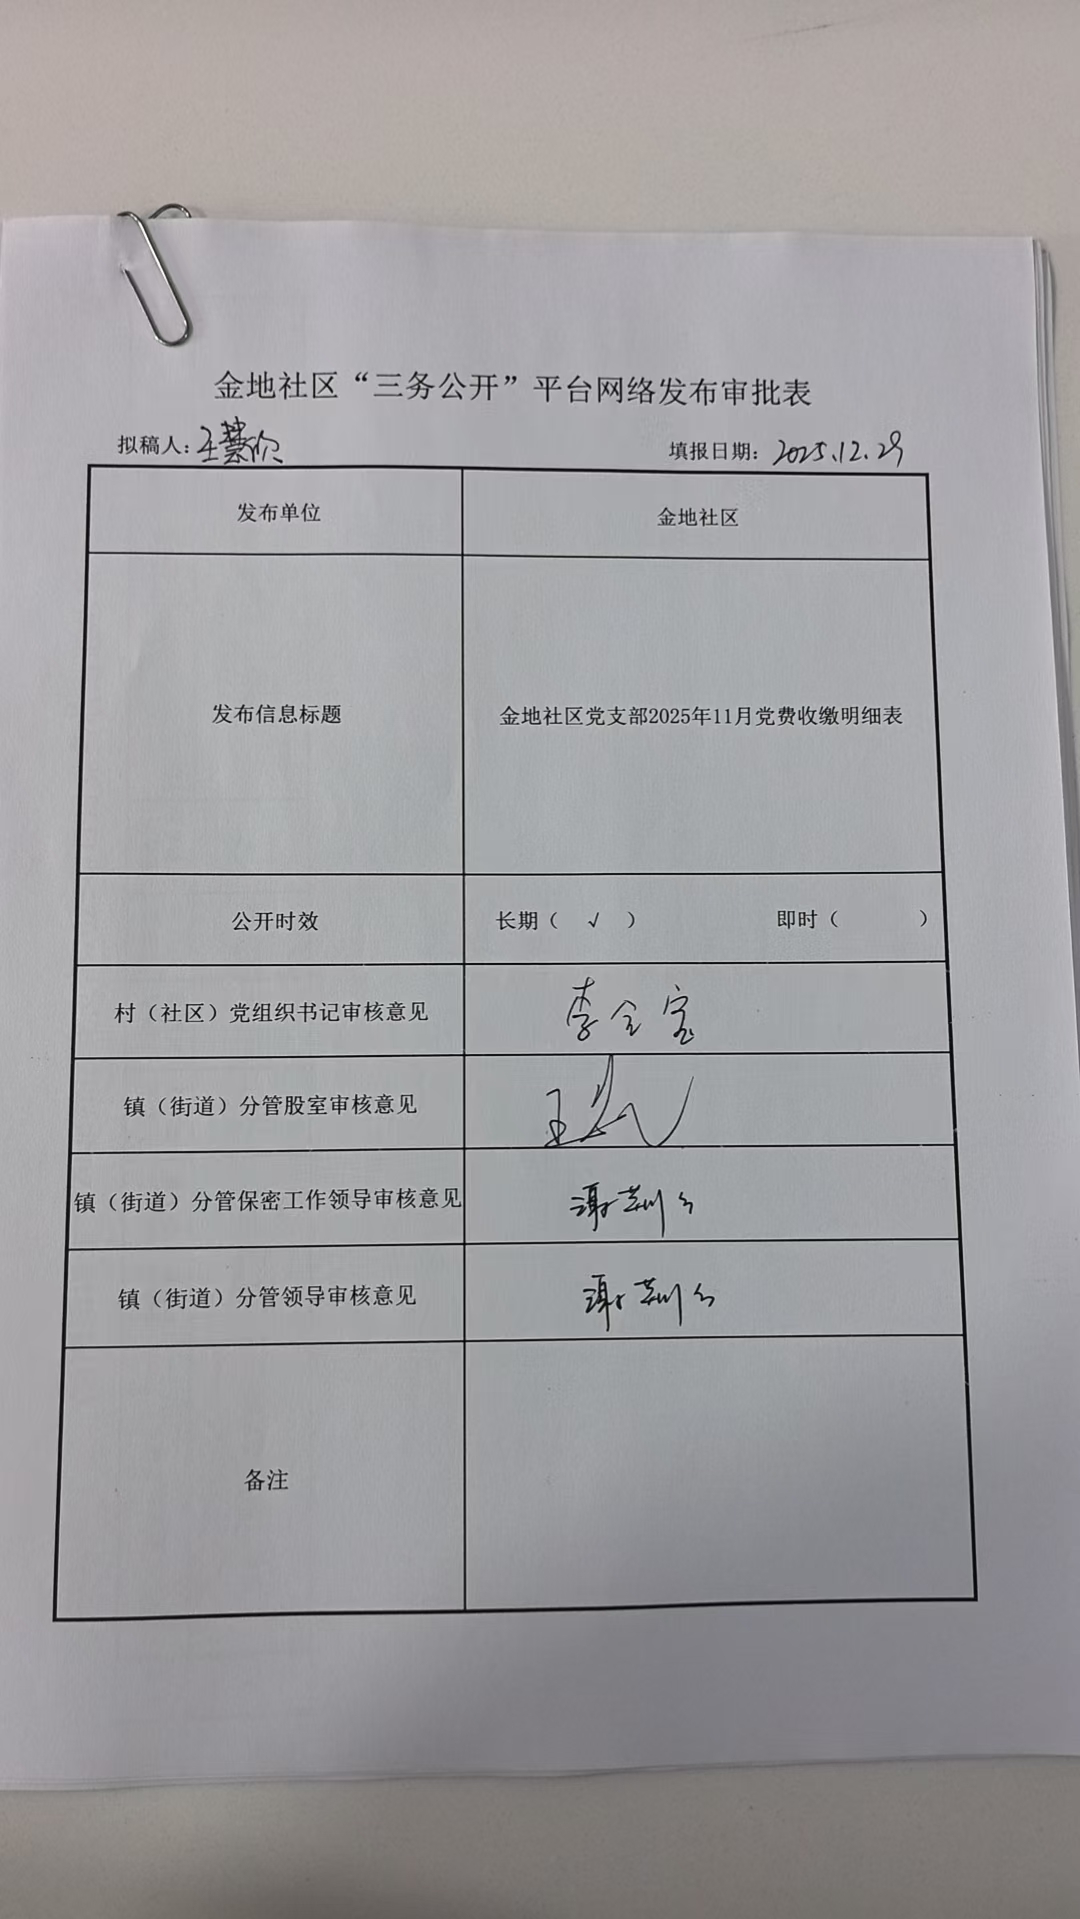 金地社区“三务公开”平台网络发布审批表
拟稿人：王慧欣 填报日期：2025.12.29
发布单位 金地社区
发布信息标题 金地社区党支部2025年11月党费收缴明细表
公开时效 长期（ √ ） 即时（ ）
村（社区）党组织书记审核意见 李全宝
镇（街道）分管股室审核意见 王
镇（街道）分管保密工作领导审核意见 谢
镇（街道）分管领导审核意见 谢
备注